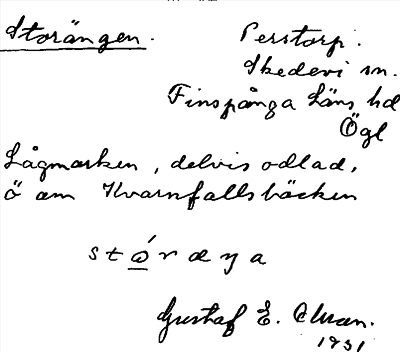 Storängen.
Perstorp.
Skedevi sn.
Finspånga läns hd
Ögl
Lågmarken, delvis odlad,
ö om Kvarnfallsbäcken
Gustaf E.
1931